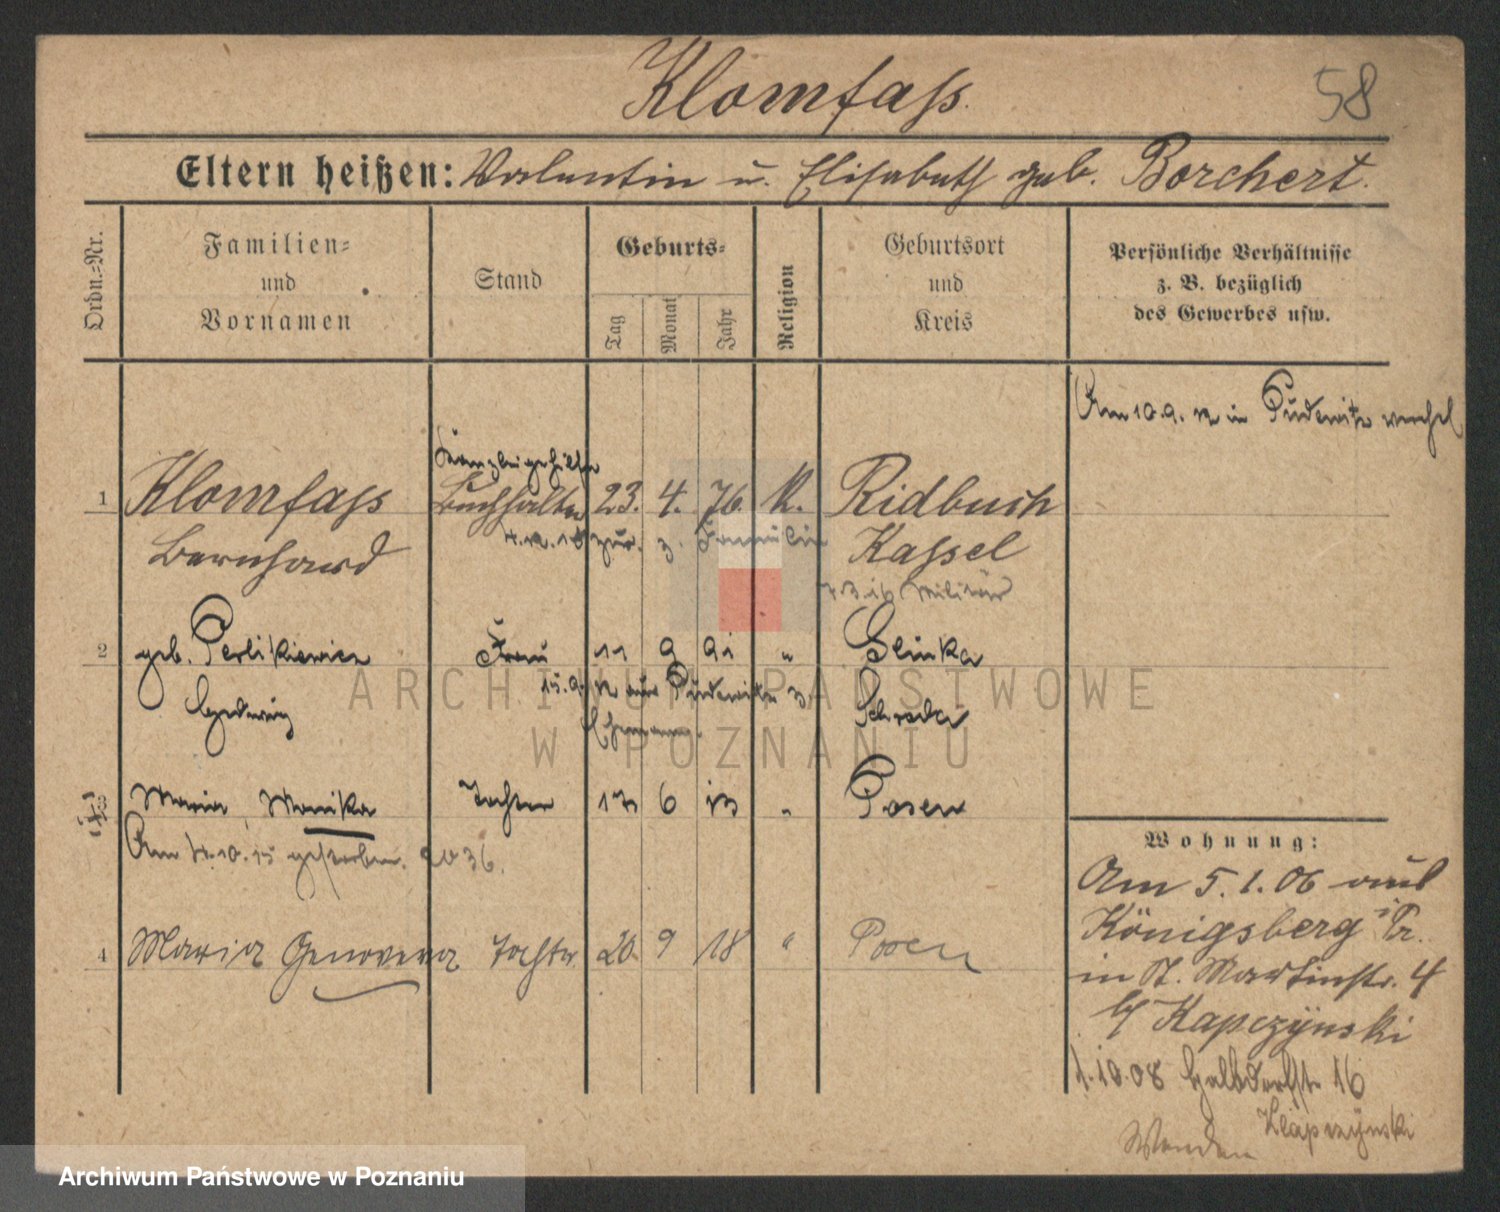 Klomfass.
58
Eltern heißen: Valentin u. Elisabeth geb. Borchert.
Ordn.=Nr.
Familien=
und
Vornamen
Stand
Geburts=
Tag
Monat
Jahr
Religion
Geburtsort
und
Kreis
Persönliche Verhältnisse
z. B. bezüglich
des Gewerbes usw.
Am 10.9. in Pudewitz
Kanzleigehilfe
1 Klomfass Buchhalter 23. 4. 76. K. Ridbach
Bernhard Kassel
zur. z. Familie
Militär
2 geb. Perlikiewicz Frau 11 9 91 " Glinka
Hedwig Schroda
15.9. aus Pudewitz z.
Ehemann.
3 Maria, Monika Tochter 17 6 13 " Posen
Am 4.10.15 gestorben. 2036.
4 Maria Genovewa Tochter 20. 9 18 " Posen
Wohnung:
Am 5.1.06 aus
Königsberg i. Pr.
in St. Martinstr. 4
b/ Kapczynski
1.10.08 Halbdorfstr 16
Klapczynski
Wenden
ARCHIWUM PAŃSTWOWE
W POZNANIU
Archiwum Państwowe w Poznaniu